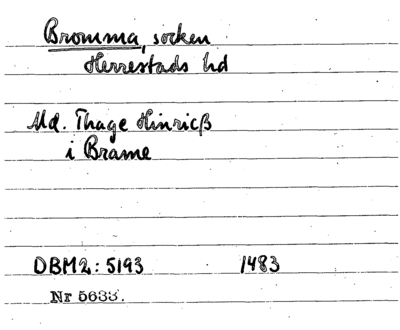 Bromma, socken
Herrestads hd
Md. Thage Hinricß
i Brame
DBM2: 5193 1483
Nr 5633.